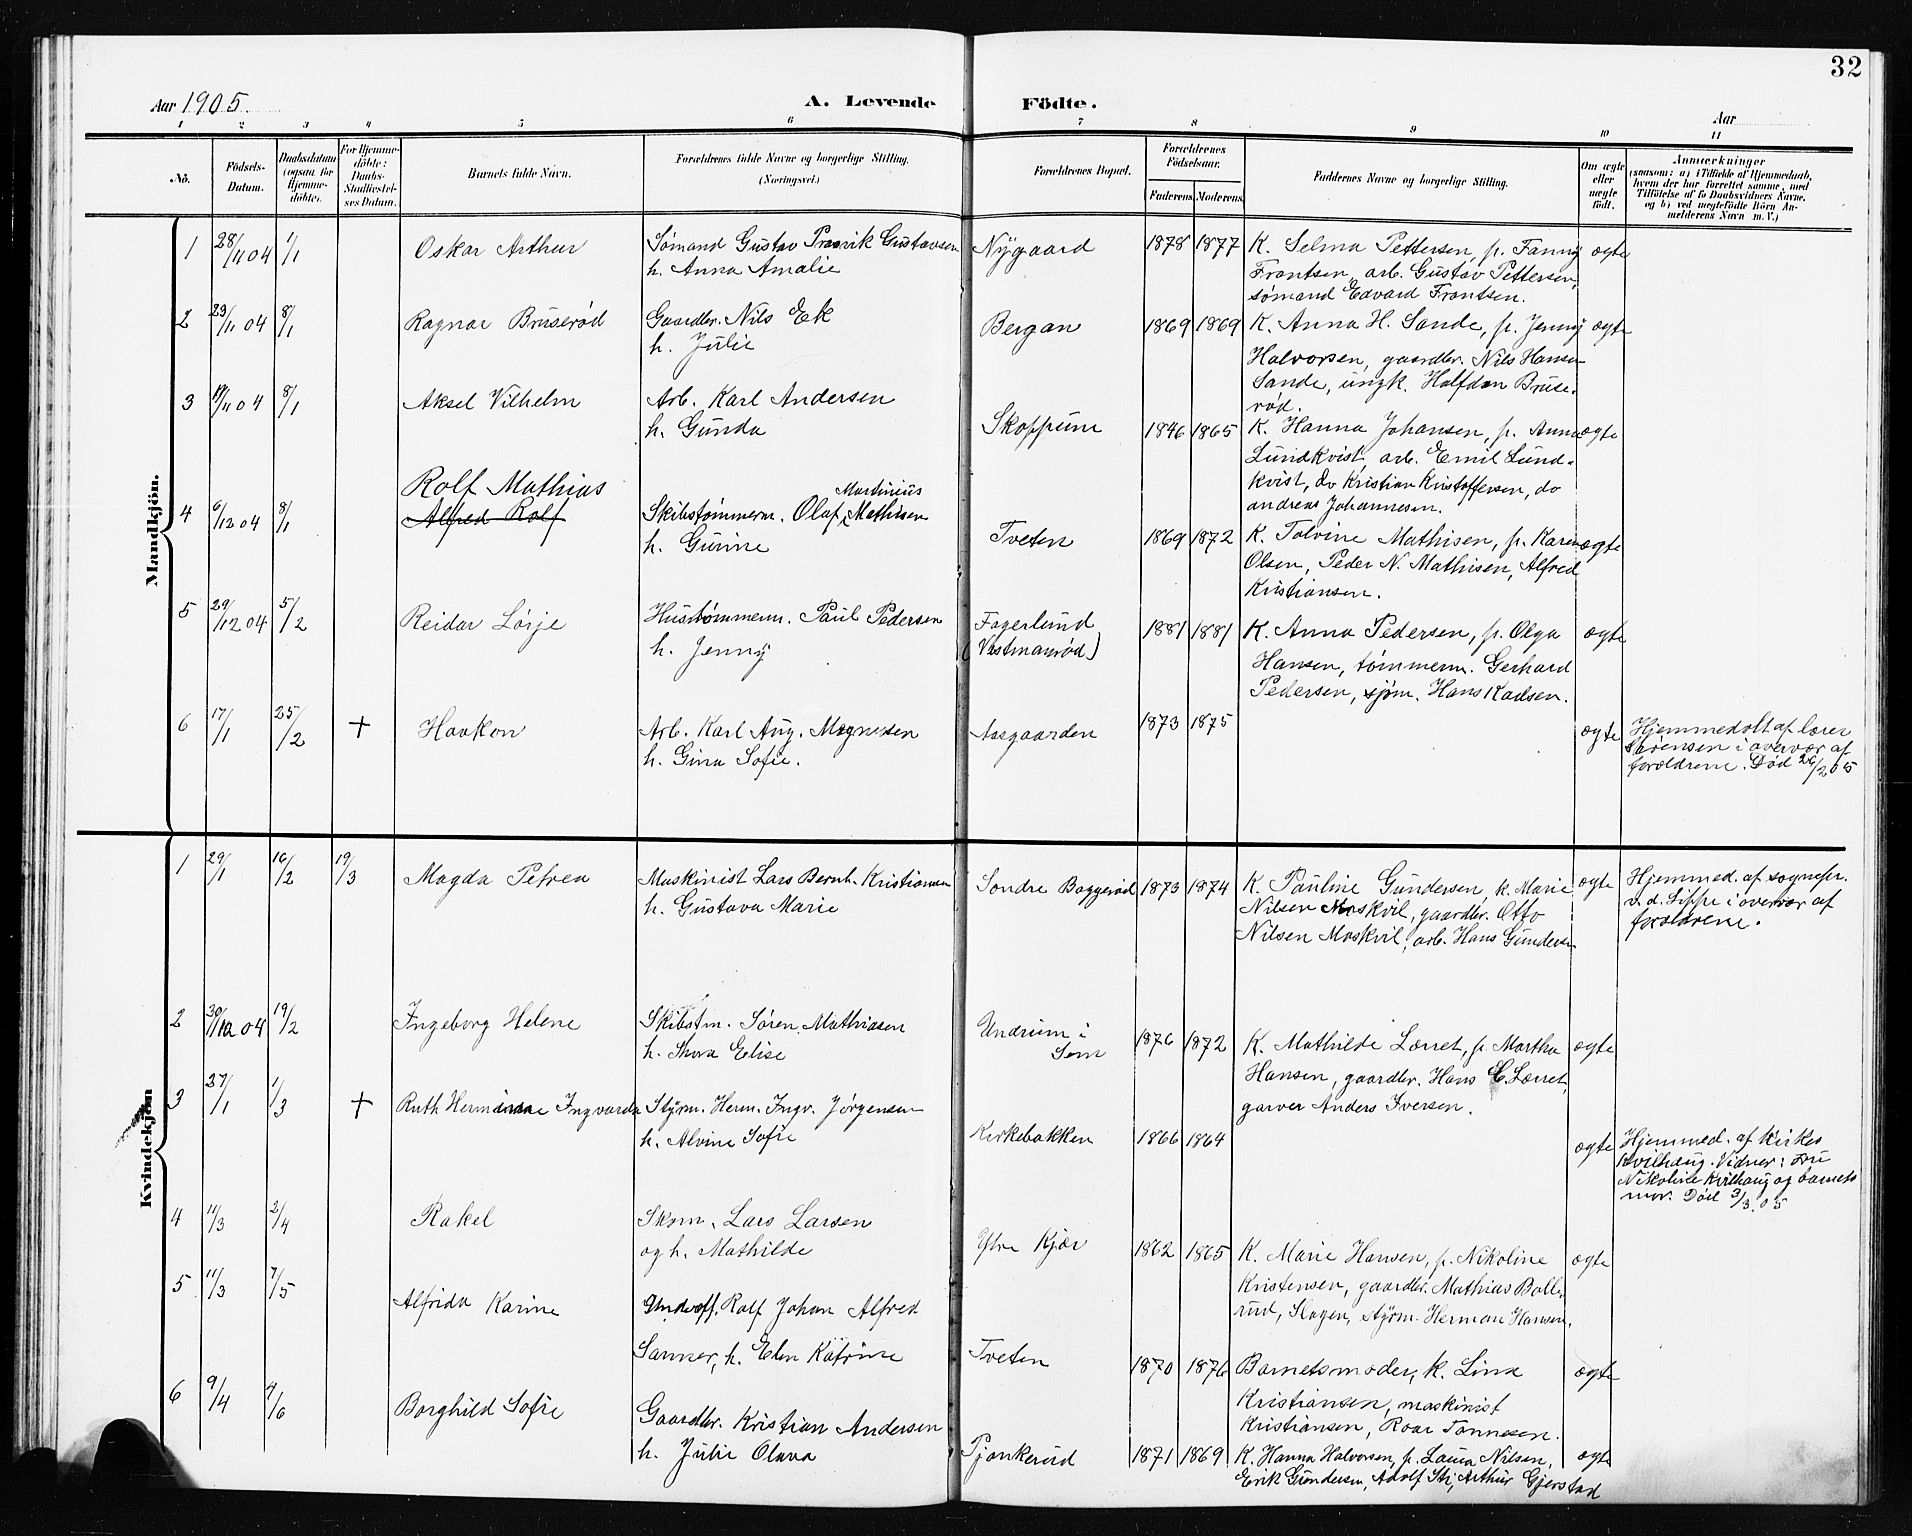 32
Aar 1905.
A. Levende Födte.
Aar
1 2 3 4 5 6 7 8 9 10 11
No.
Födsels-Datum.
Daabsdatum (ogsaa for Hjemme-döbte).
For Hjemme-döbte: Daabs-Stadfæstel-ses Datum.
Barnets fulde Navn.
Forældrenes fulde Navne og borgerlige Stilling. (Næringsvei.)
Forældrenes Bopæl.
Forældrenes Födselsaar.
Faderens Moderens
Faddernes Navne og borgerlige Stilling.
Om ægte eller uægte födt.
Anmærkninger
(saasom: a) i Tilfælde af Hjemmedaab, hvem der har forrettet samme, med Tilföielse af to Daabsvidners Navne, og b) ved uægtefödte Börn Anmelderens Navn m. V.)
Mandkjön.
1 28/11 04 1/1 Oskar Arthur
Sømand Gustav Gustavsen
h. Anna Amalie
Nygaard 1878 1877
K. Selma Pettersen, p. Fanny
Frantsen, arb. Gustav Pettersen,
sømand Edvard Frantsen.
ægte
2 23/11 04 8/1 Ragnar Bruserød
Gaardbr. Nils Ek
h. Julie
Bergan 1869 1869
K. Anna H. Sande, p. Jenny
Halvorsen, gaardbr. Nils Hansen
Sande, ungk. Halfdan Bruse-
rød.
ægte
3 19/11 04 8/1 Aksel Vilhelm
Arb. Karl Andersen
h. Gunda
Skoppum 1846 1865
K. Hanna Johansen, p. Anna
Lundkvist, arb. Emil Lund-
kvist, do Kristian Kristoffersen, do
Andreas Johannesen.
ægte
4 6/12 04 8/1 Rolf Mathias
Alfred Rolf
Skibstømmerm. Olaf Martinius Mathisen
h. Gurine
Tveten 1869 1872
K. Tolvine Mathisen, p. Karen
Olsen, Peder N. Mathisen, Alfred
Kristiansen.
ægte
5 29/12 04 5/2 Reidar Lørje
Hustømmerm. Paul Pedersen
h. Jenny
Fagerlund
(Vestmanrød)
1881 1881
K. Anna Pedersen, p. Olga
Hansen, tømmerm. Gerhard
Pedersen, sjøm. Hans Karlsen.
ægte
6 17/1 25/2 + Haakon
Arb. Karl Aug. Magnesen
h. Gina Sofie.
Aasgaarden 1873 1875
ægte
Hjemmedøbt af lærer
Sørensen i overvær af
forældrene. Død 26/2 05
Kvindekjön
1 29/1 16/2 19/3 Magda Petrea
Maskinist Lars Bernh. Kristiansen
h. Gustava Marie
Søndre Baggerød 1873 1874
K. Pauline Gundersen, k. Marie
Nilsen Moskvil, gaardbr. Otto
Nilsen Moskvil, arb. Hans Gundersen
ægte
Hjemmed. af sognepr.
v. d. Lippe i overvær af
forældrene.
2 30/12 04 19/2 Ingeborg Helene
Skibstm. Søren Mathiasen
h. Thora Elise
Undrum i
Sem
1876 1872
K. Mathilde Lørret, p. Martha
Hansen, gaardbr. Hans C. Lørret,
garver Anders Iversen.
ægte
3 27/1 1/3 + Ruth Hermine Ingvarda
Styrm. Herm. Ingv. Jørgensen
h. Alvine Sofie
Kirkebakken 1866 1864
ægte
Hjemmed. af kirkes
Kvilhaug. Vidner: Fru
Nikoline Kvilhaug og barnets
mor. Død 3/3 05
4 11/3 2/4 Rakel
Skom. Lars Larsen
og h. Mathilde
Ytre Kjær 1862 1865
K. Marie Hansen, p. Nikoline
Kristensen, gaardbr. Mathias Balle-
rud, Slagen, styrm. Herman Hansen.
ægte
5 11/3 7/5 Alfrida Karine
Underoff. Rolf Johan Alfred
Sanner, h. Elen Katrine
Tveten 1870 1876
Barnets moder, k. Lina
Kristiansen, maskinist
Kristiansen, Roar Tønnesen.
ægte
6 9/4 4/6 Borghild Sofie
Gaardbr. Kristian Andersen
h. Julie Olava
Pjonkerud 1871 1869
K. Hanna Halvorsen, p. Laura Nilsen,
Erik Gundersen, Adolf Sti, Arthur Gjerstad
ægte